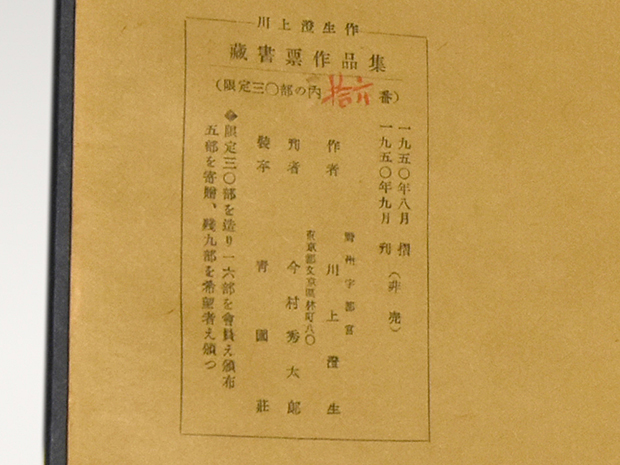 川上澄生作
藏書票作品集
(限定三〇部の内 拾六 番)
一九五〇年八月 摺
一九五〇年九月 刊 (非売)
野州宇都宮
作者 川上澄生
東京都文京區林町八〇
刊者 今村秀太郎
裝本 青園莊
◆限定三〇部を造り一六部を會員え頒布
五部を寄贈、殘九部を希望者え頒つ